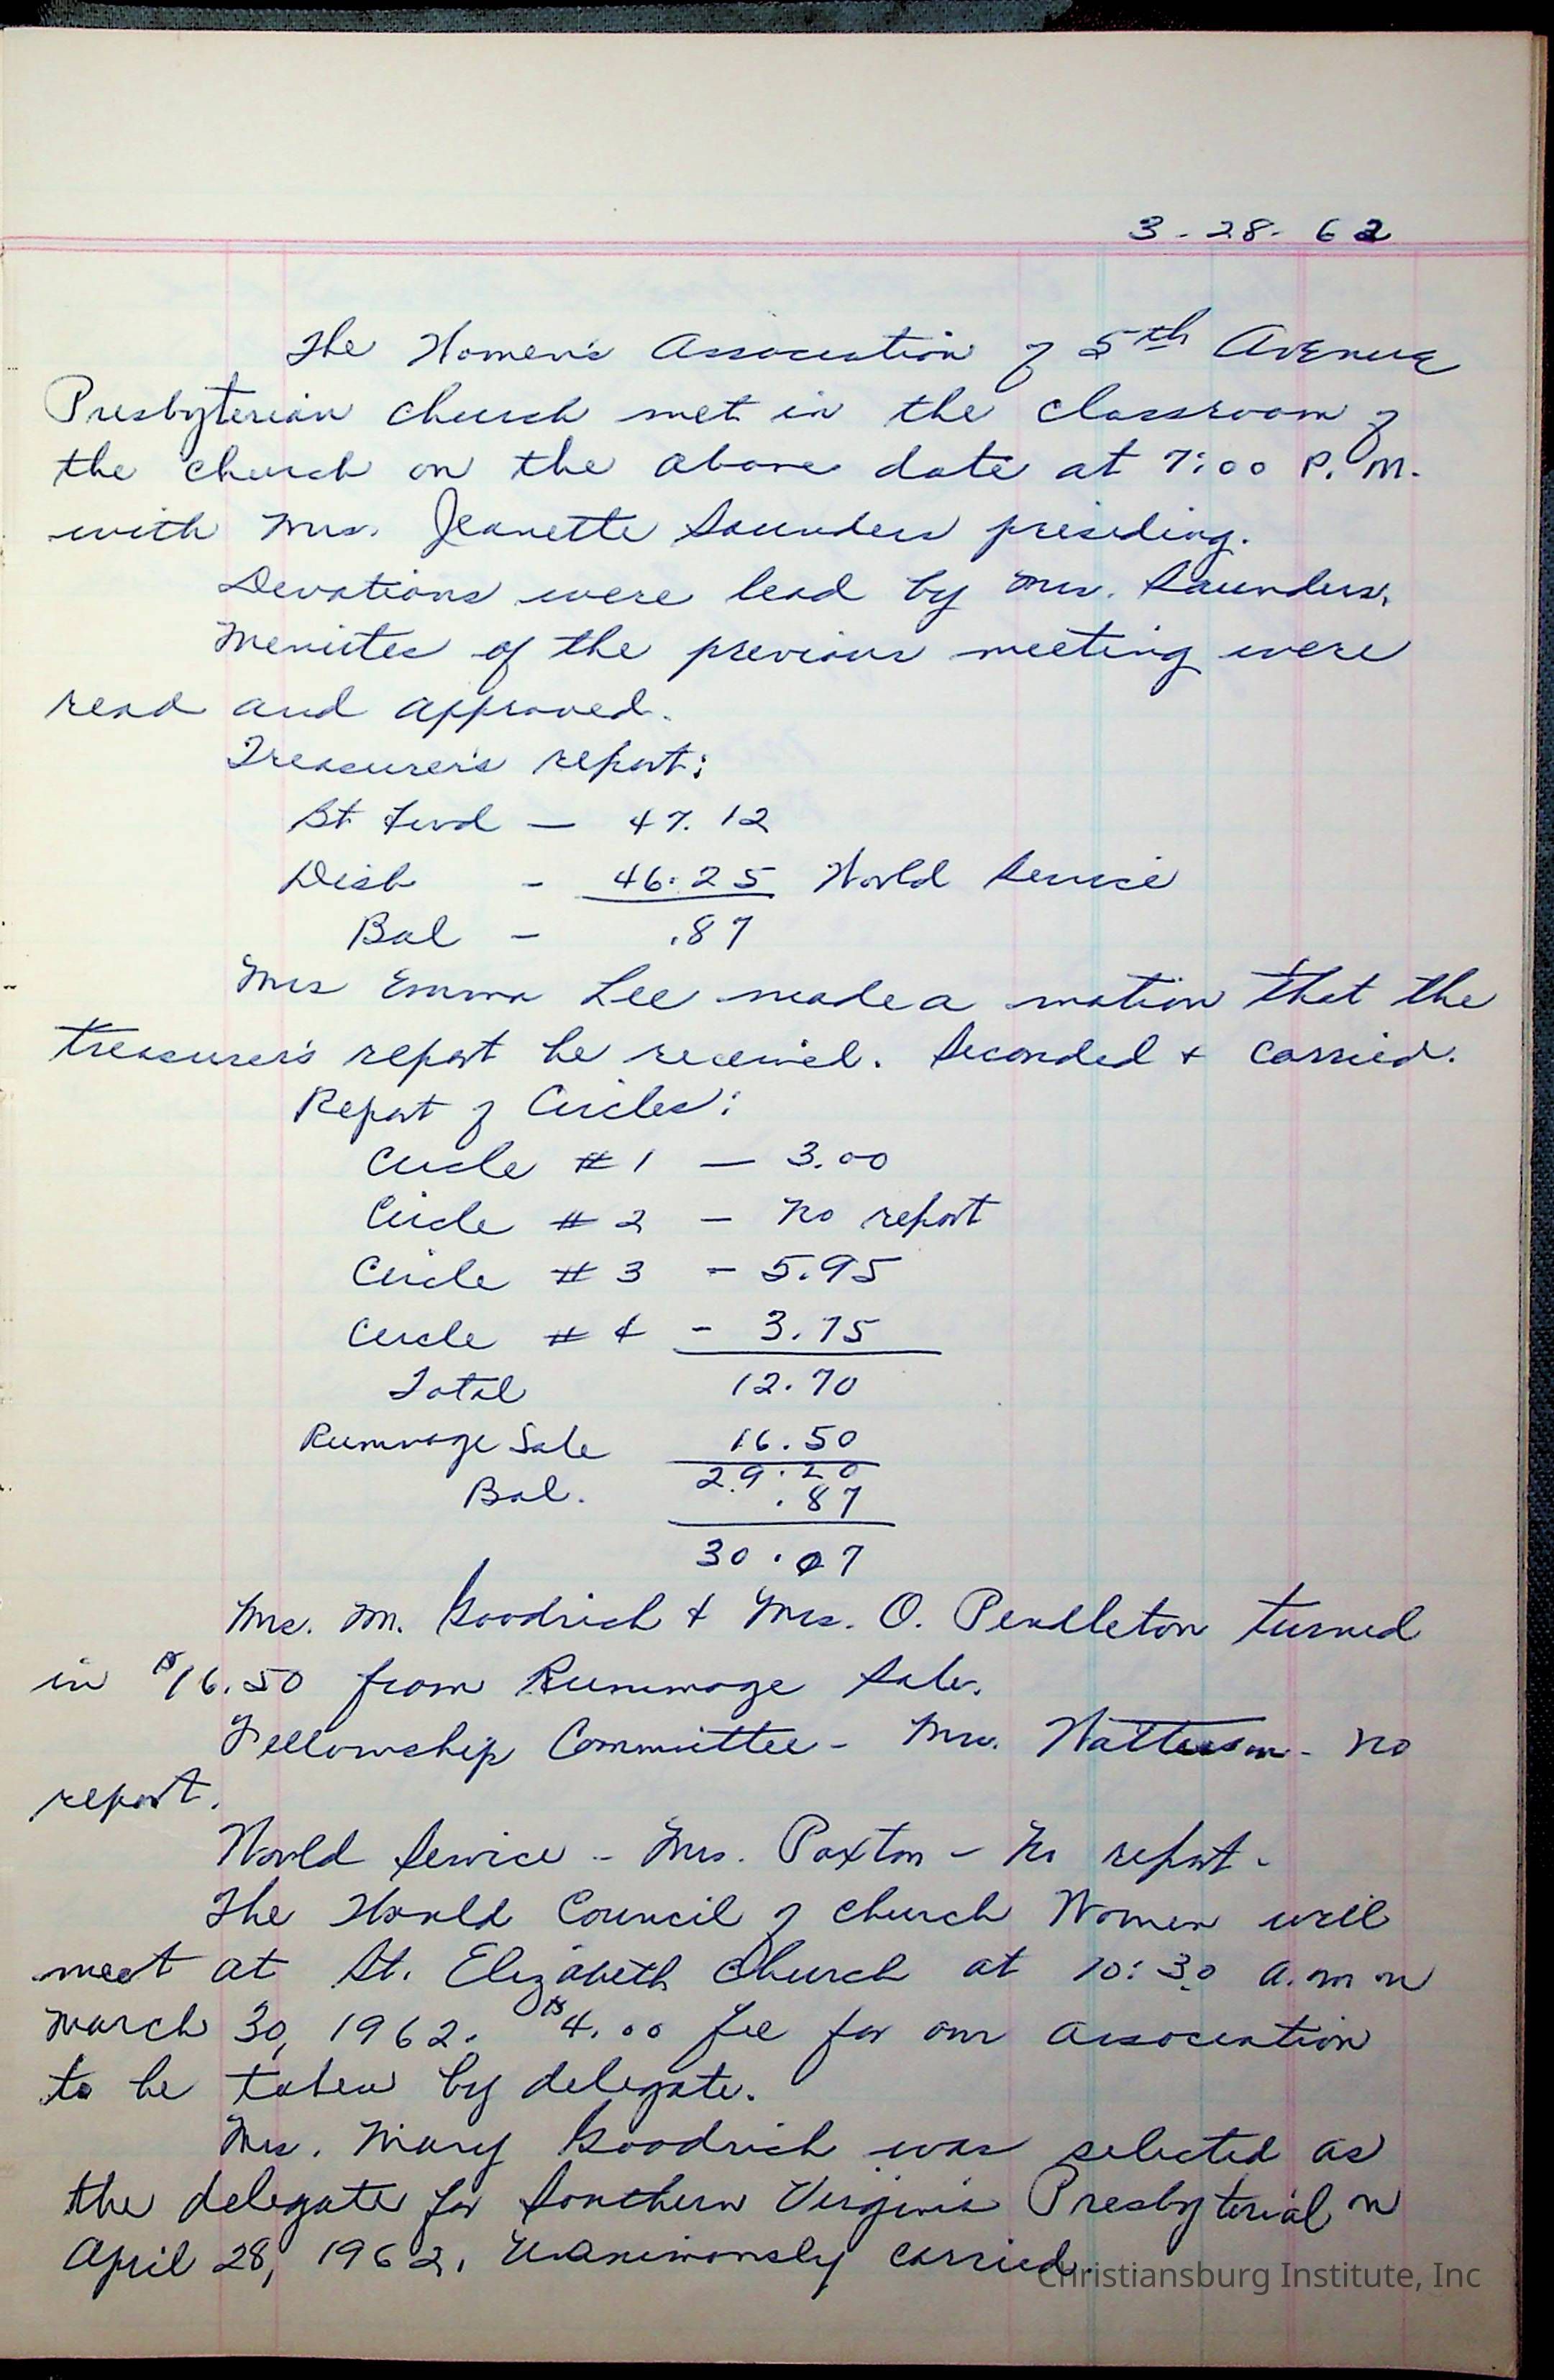 3-28-62
The Women's Association of 5th Avenue
Presbyterian Church met in the classroom of
the church on the above date at 7:00 P.M.
with Mrs. Jeanette Saunders presiding.
Devotions were lead by Mrs. Saunders.
Menutes of the previous meeting were
read and approved.
Treasurer's report:
Bt. Fwd — 47.12
Disb - 46.25 World Service
Bal - .87
Mrs Emma Lee made a motion that the
treasurer's report be received. Seconded + carried.
Report of Circles:
Circle #1 — 3.00
Circle #2 - no report
Circle #3 - 5.95
Circle #4 - 3.75
Total 12.70
Rummage Sale 16.50
29.20
Bal. .87
30.07
Mrs. M. Goodrich + Mrs. O. Pendleton turned
in $16.50 from Rummage Sale.
Fellowship Committee - Mrs. Watterson - no
report.
World Service - Mrs. Paxton - No report.
The World Council of Church Women will
meet at St. Elizabeth Church at 10:30 a.m on
March 30, 1962. $4.00 fee for our association
to be taken by delegate.
Mrs. Mary Goodrich was selected as
the delegate for Southern Virginia Presbyterial on
April 28, 1962. Unanimously carried.
Christiansburg Institute, Inc